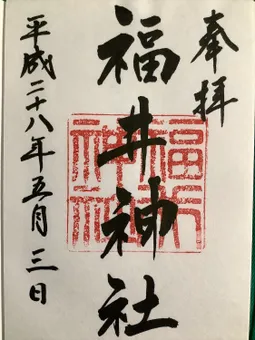 奉拝
福井神社
福井神社
平成二十八年五月三日